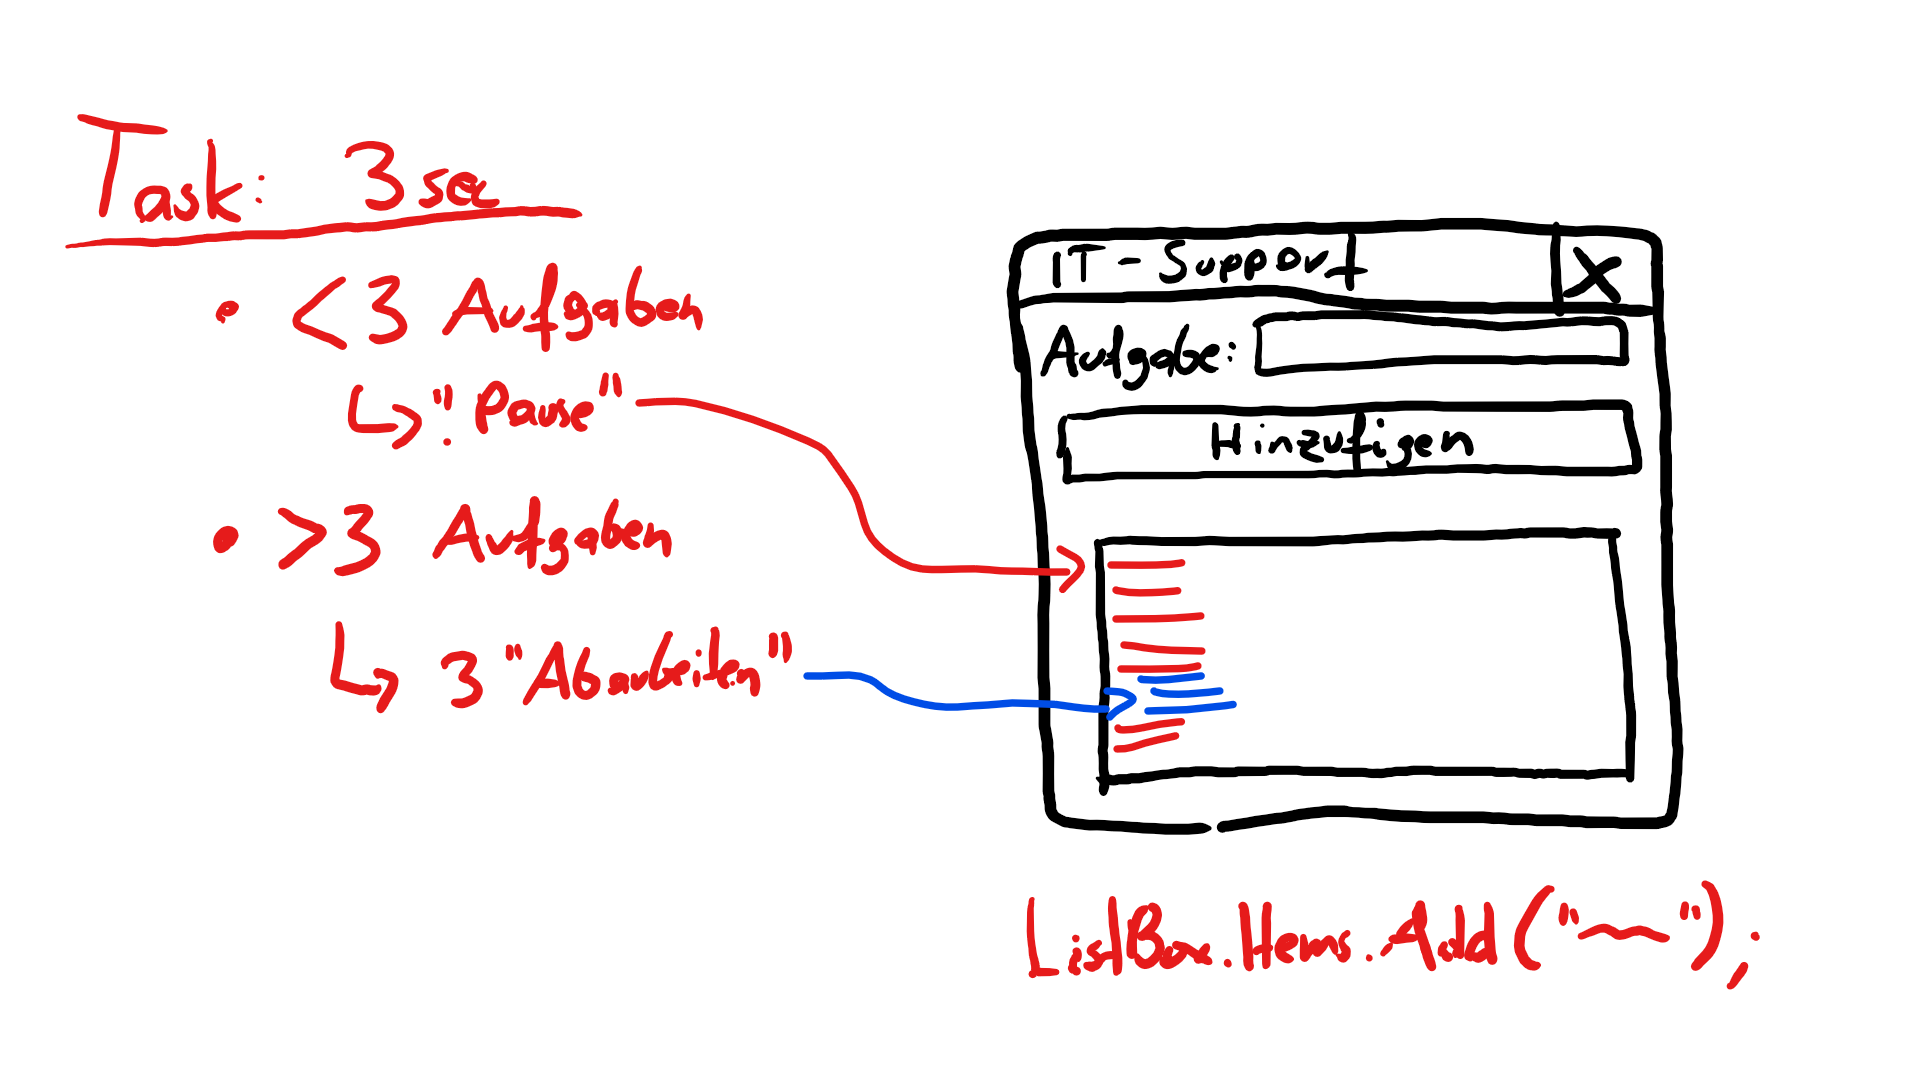 Task: 3sec
• <3 Aufgaben
↳ "! Pause"
• >3 Aufgaben
↳ 3 "Abarbeiten"
IT-Support X
Aufgabe:
Hinzufigen
ListBox.Items.Add("~~");